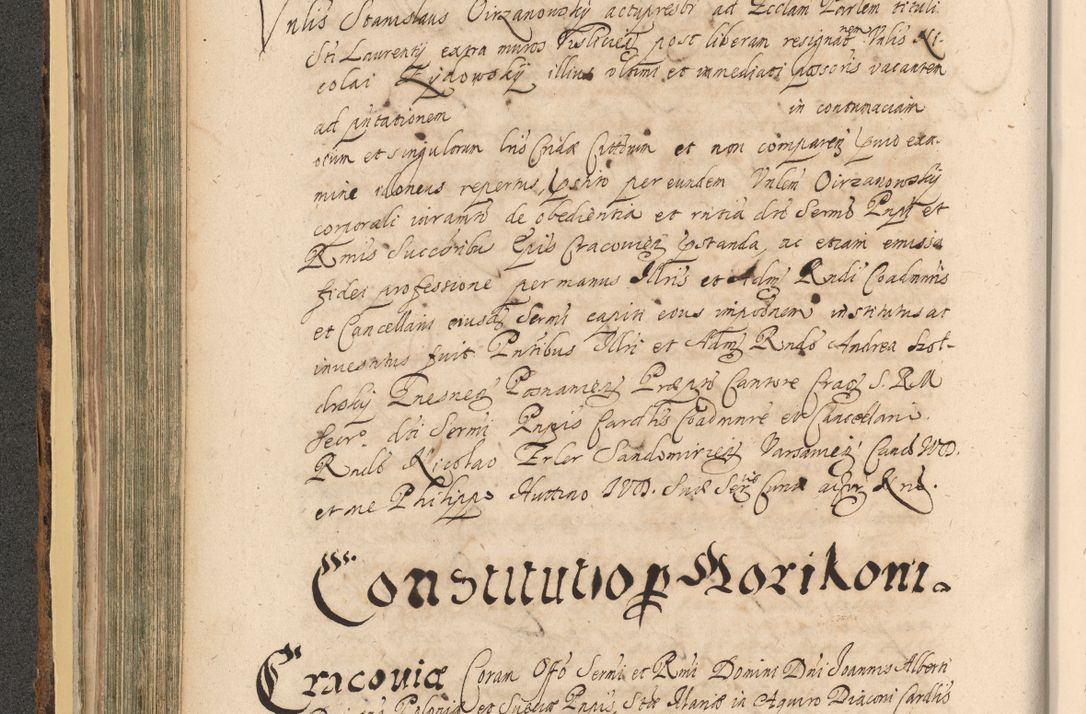 Vnlis Stanislaus Oirzanowskÿ actupresbr ad Ecclam Parlem tituli
Sti Laurentÿ extra muros Visliciẽ post liberam resignatnem Vnlis Ni-
colai Zydowskÿ illius vltimi et immediati possoris vacantem
ad pntationem in contumaciam
otum et singulorum lris Cridæ Cittorum et non comparen puio exa-
mine idoneus repertus pstito per eundem Vnlem Oirzanowskÿ
corporali iuramto de obedientia et rntia dti Sermi Pnpis et
Rmis Succoribus Epis Cracovien pstanda, ac etiam emissa
fidei professione per manus Illris et Adm Rndi Coadmris
et Cancellarij eiusd Sermi capiti eius impobnem institutus ac
investitus fuit Pntibus Illri et Adm Rndo Andrea Szol-
drskÿ Gnesnen Posnanien Præpto Cantore Crac S. R. M
Secro. dti Sermi Pnpis Cardlis Coadmre et Cancellario.
Rndo Nicolao Erler Sandomirien Varsavien Cano IVD.
et me Philippo Huttino IVD. Suæ Sertis Curiæ actor Nrio.
Constitutio p Gorikoni.
Cracoviæ Coram Offo Sermi et Rmi Domini Dni Joannis Alberti
Poloniæ et Sueciæ Pnpis, Stæ Mariæ in Aquiro Diaconi Cardlis